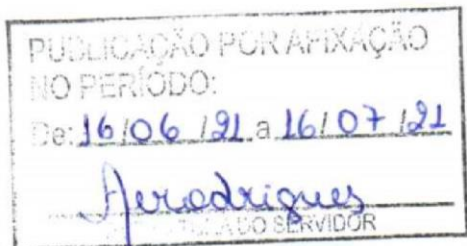 PUBLICAÇÃO POR AFIXAÇÃO
NO PERÍODO:
De: 16/06/21 a 16/07/21
Aerodrigues
DO SERVIDOR